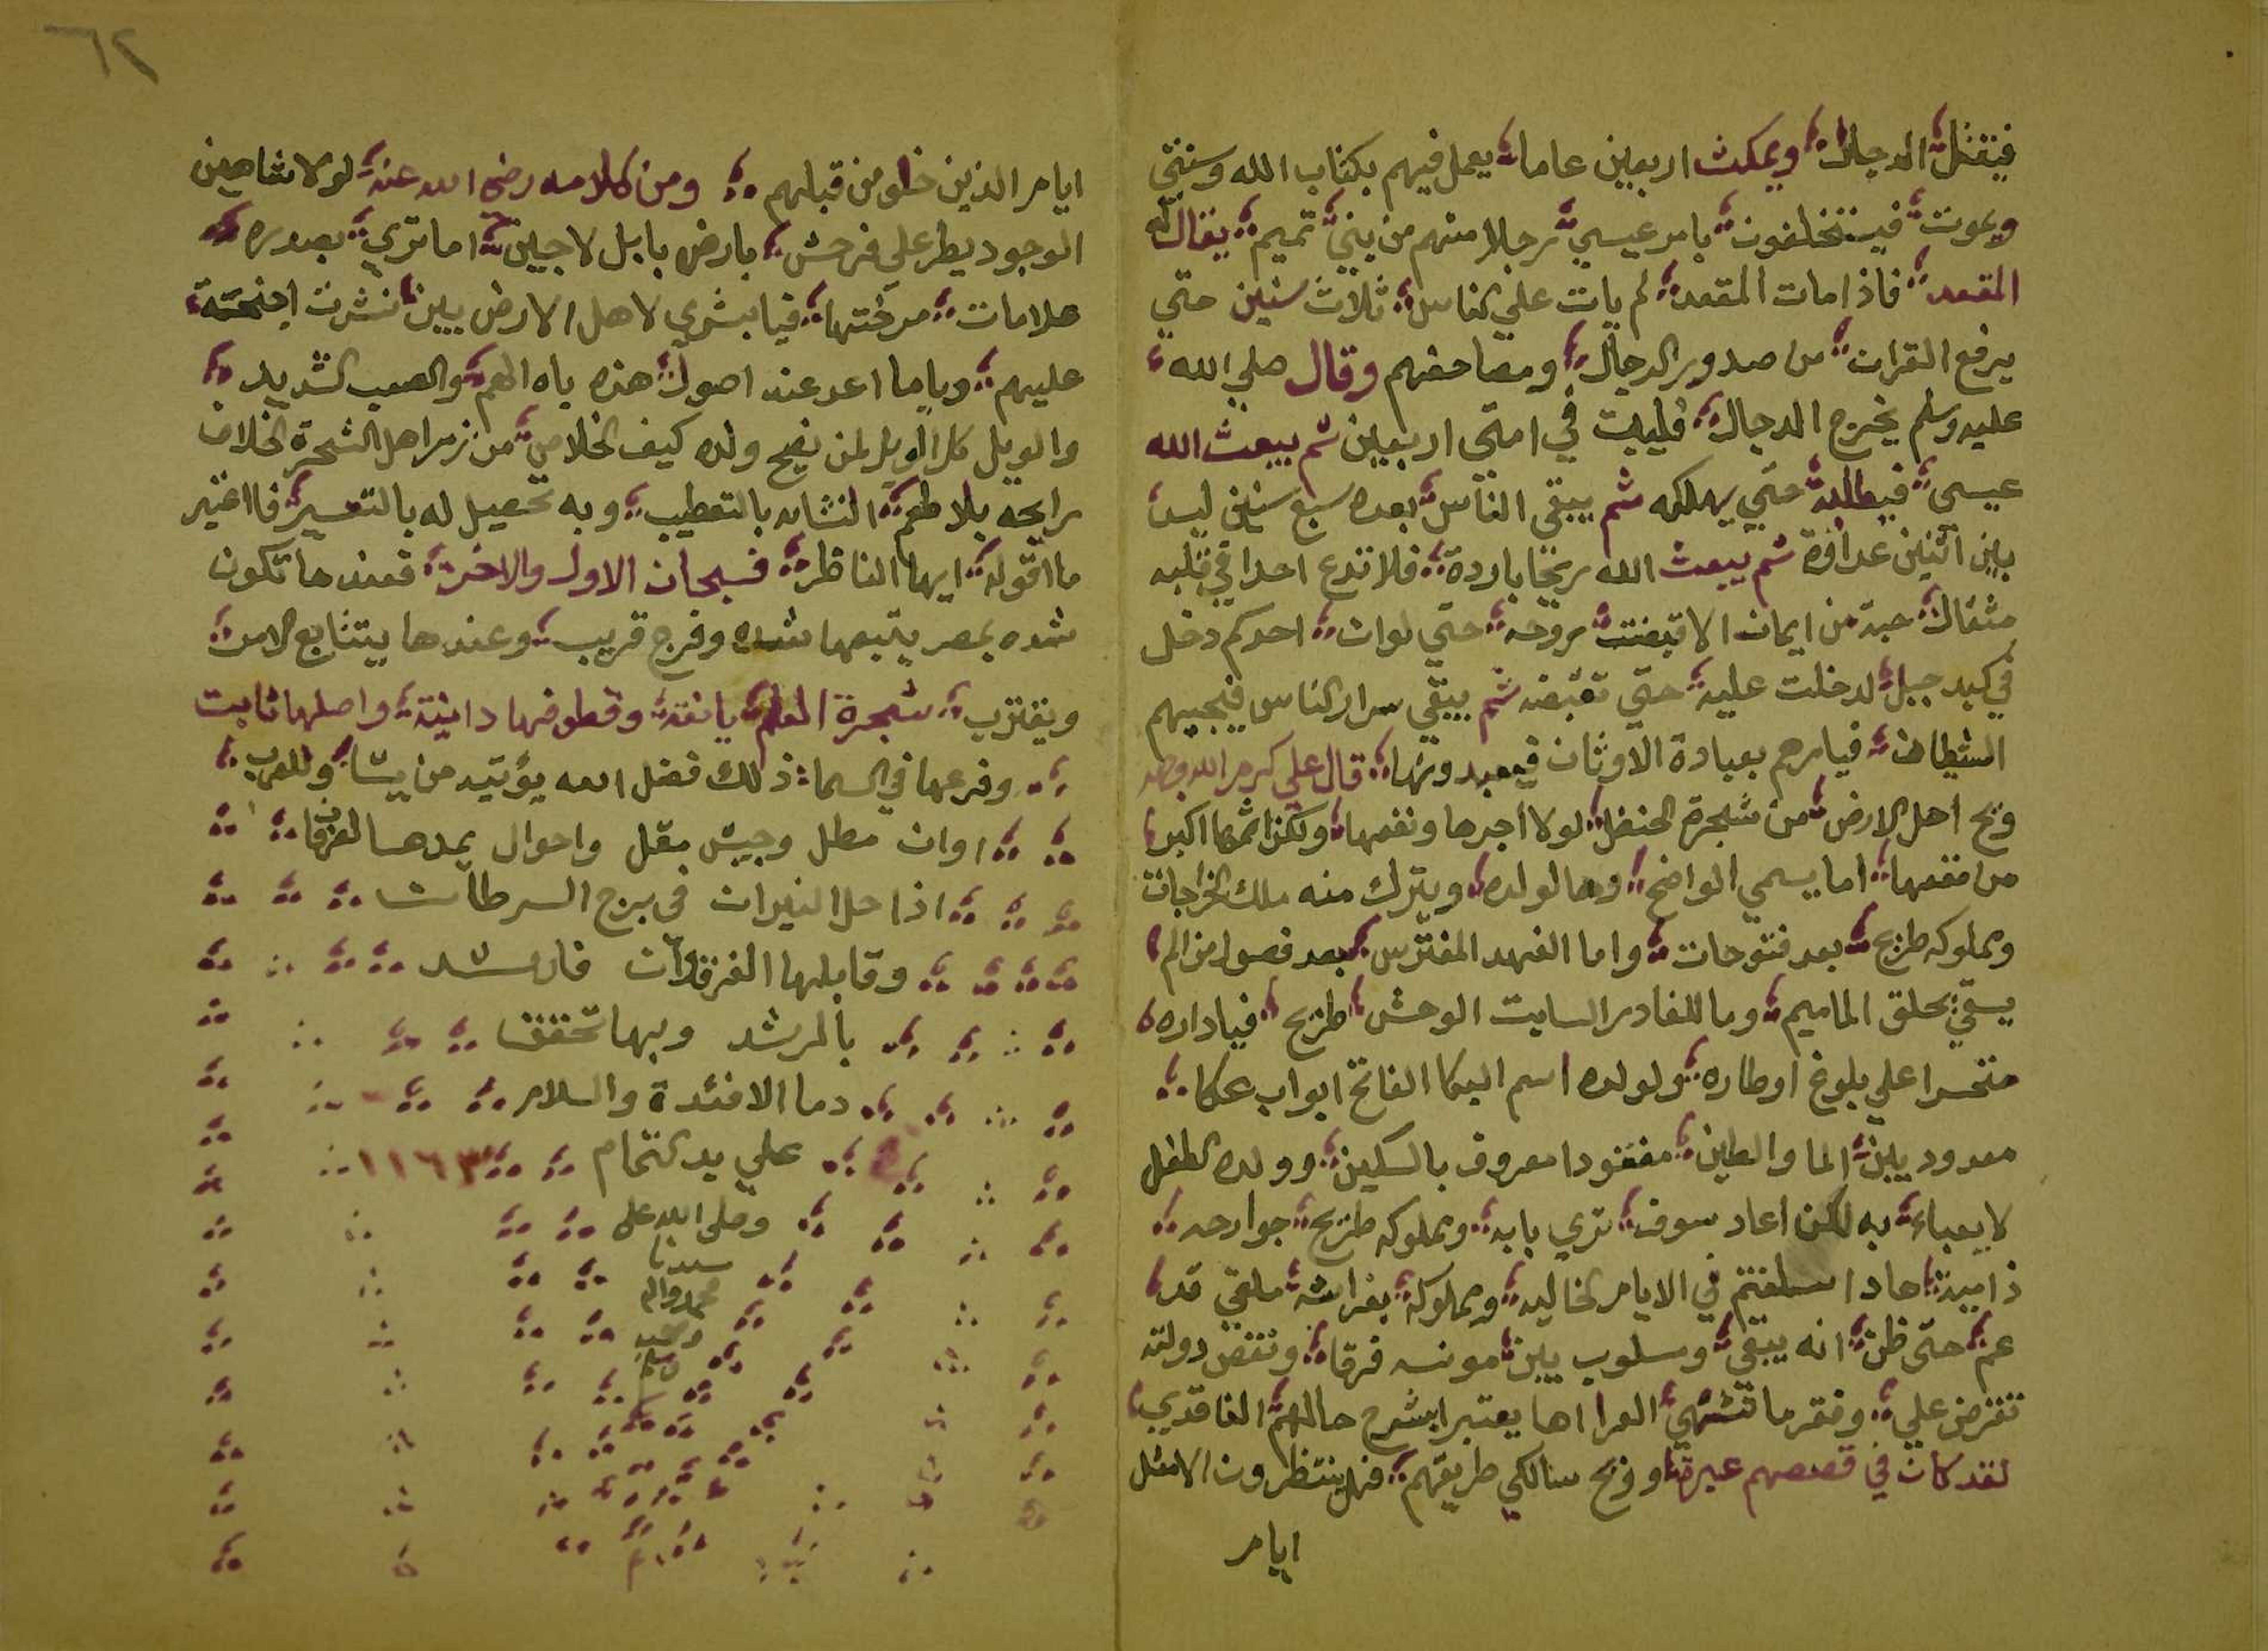 فيقتل الدجال ويمكث اربعين عاما يعمل فيهم بكتاب الله وسنتي
ويموت فيستخلفون بامر عيسي رجلا منهم من بني تميم يقال له
المقعد فاذا مات المقعد لم يات علي الناس ثلاث سنين حتي
يرفع القران من صدور الرجال ومصاحفهم وقال صلي الله
عليه وسلم يخرج الدجال فليبث في امتى اربعين ثم يبعث الله
عيسى فيطلبه حتي يهلكه ثم يبقى الناس بعده سبع سنين ليس
بين اثنين عداوة ثم يبعث الله ريحا باردة فلا تدع احدا في قلبه
مثقال حبة من ايمان الا قبضت روحه حتي لوان احدكم دخل
في كبد جبل لدخلت عليه حتي تقبضه ثم يبقي سرار الناس فيجيبهم
الشيطان فيامرهم بعبادة الاوثان فيعبدونها قال علي كرم الله وجهه
ويح اهل الارض من شجرة الحنظل لولا اجرها ونفعها ولكن اثمها اكبر
من نفعها اما يسمي الواضح وما لولده ويترك منه ملك الخراجات
ومملوكه طريح بعد فتوحات واما الفهد المفترس بعد فصول من الم
يسقي بحلق الماميم وما للغادر السابت الوحش طريح فياداره
متحسرا علي بلوغ اوطاره ولولده اسم البكا الفاتح ابواب عكا
معدود بين الما والطين مفقودا معروف بالسكين وولده الطفل
لا يعباء به لكن اعاد سوف تري بابه ومملوكه طريح جوارحه
ذاميه هاد اسلفتم في الايام الخاليه ومملوكه بفراشه ملقي قد
عم حتى ظن انه يبقي ومسلوب بين مونسه فرقا ونقض دولته
تفترض علي وفقر ما تشتهي العرا اها يعتبرا بشرح حالهم الفاقدي
لقد كان في قصصهم عبرة او ويح سالكي طريقهم فهل ينتظرون الا مثل
ايام
٦٢
ايام الذين خلو من قبلهم ومن كلامه رضى الله عنه لولا شاهين
الوجود يطر علي فرحش بارض بابل لاجين اما تري بعدوره
علامات مرختها فيا بشري لاهل الارض بين نشرت اجنحته
عليهم وياما اعد عند اصول هذه ياه الهم والصعب الشديد
والويل كل الويل لمن يفيح ولده كيف الخلاص من زمر اهل الشجرة الخلاف
رايحه بلا طعم النشاه بالتعطيب وبه تحصيل له بالتعسير فا اغير
ما اقوله ايها الناظر فسبحان الاول والاخر فعندها تكون
شده بمصر يتبعها شده وفرج قريب وعندها يتتابع الامر
ويقترب شجرة المعلم يانعه وقطوفها دانية واصلها ثابت
وفرعها في السما ذلك فضل الله يؤتيه من يشا وللعرب
اوان مطل وجيش مقل واحوال يمدها الفرقان
اذا حل النيران في برج السرطان
وقابلها الفرقدان فارشد
بالمرشد وبها تحقق
دما الافئدة والسلام
علي يد التمام ١١٦٣
وصلى الله على
سيدنا
محمد واله
وصحبه
وسلم